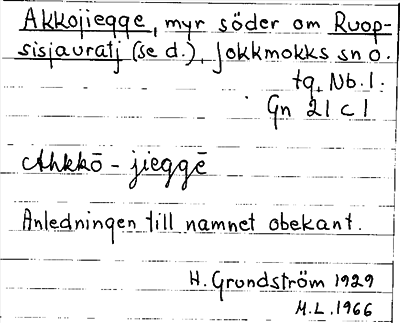 Akkojiegge, myr söder om Ruop-
sisjauratj (se d.), Jokkmokks sn o.
tg, Nb. l.
Gn 21 c 1
Ahkkō - jieggē
Anledningen till namnet obekant.
H. Grundström 1929
M.L. 1966